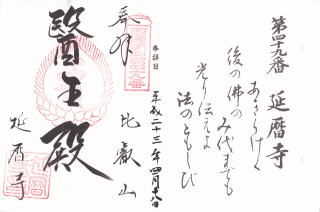 第四十九番 延暦寺
あきらけく
後の佛の
み代までも
光り伝えよ
法のともしび
参拝日
平成二十三年四月
比叡山
奉拝
醫王殿
延暦寺